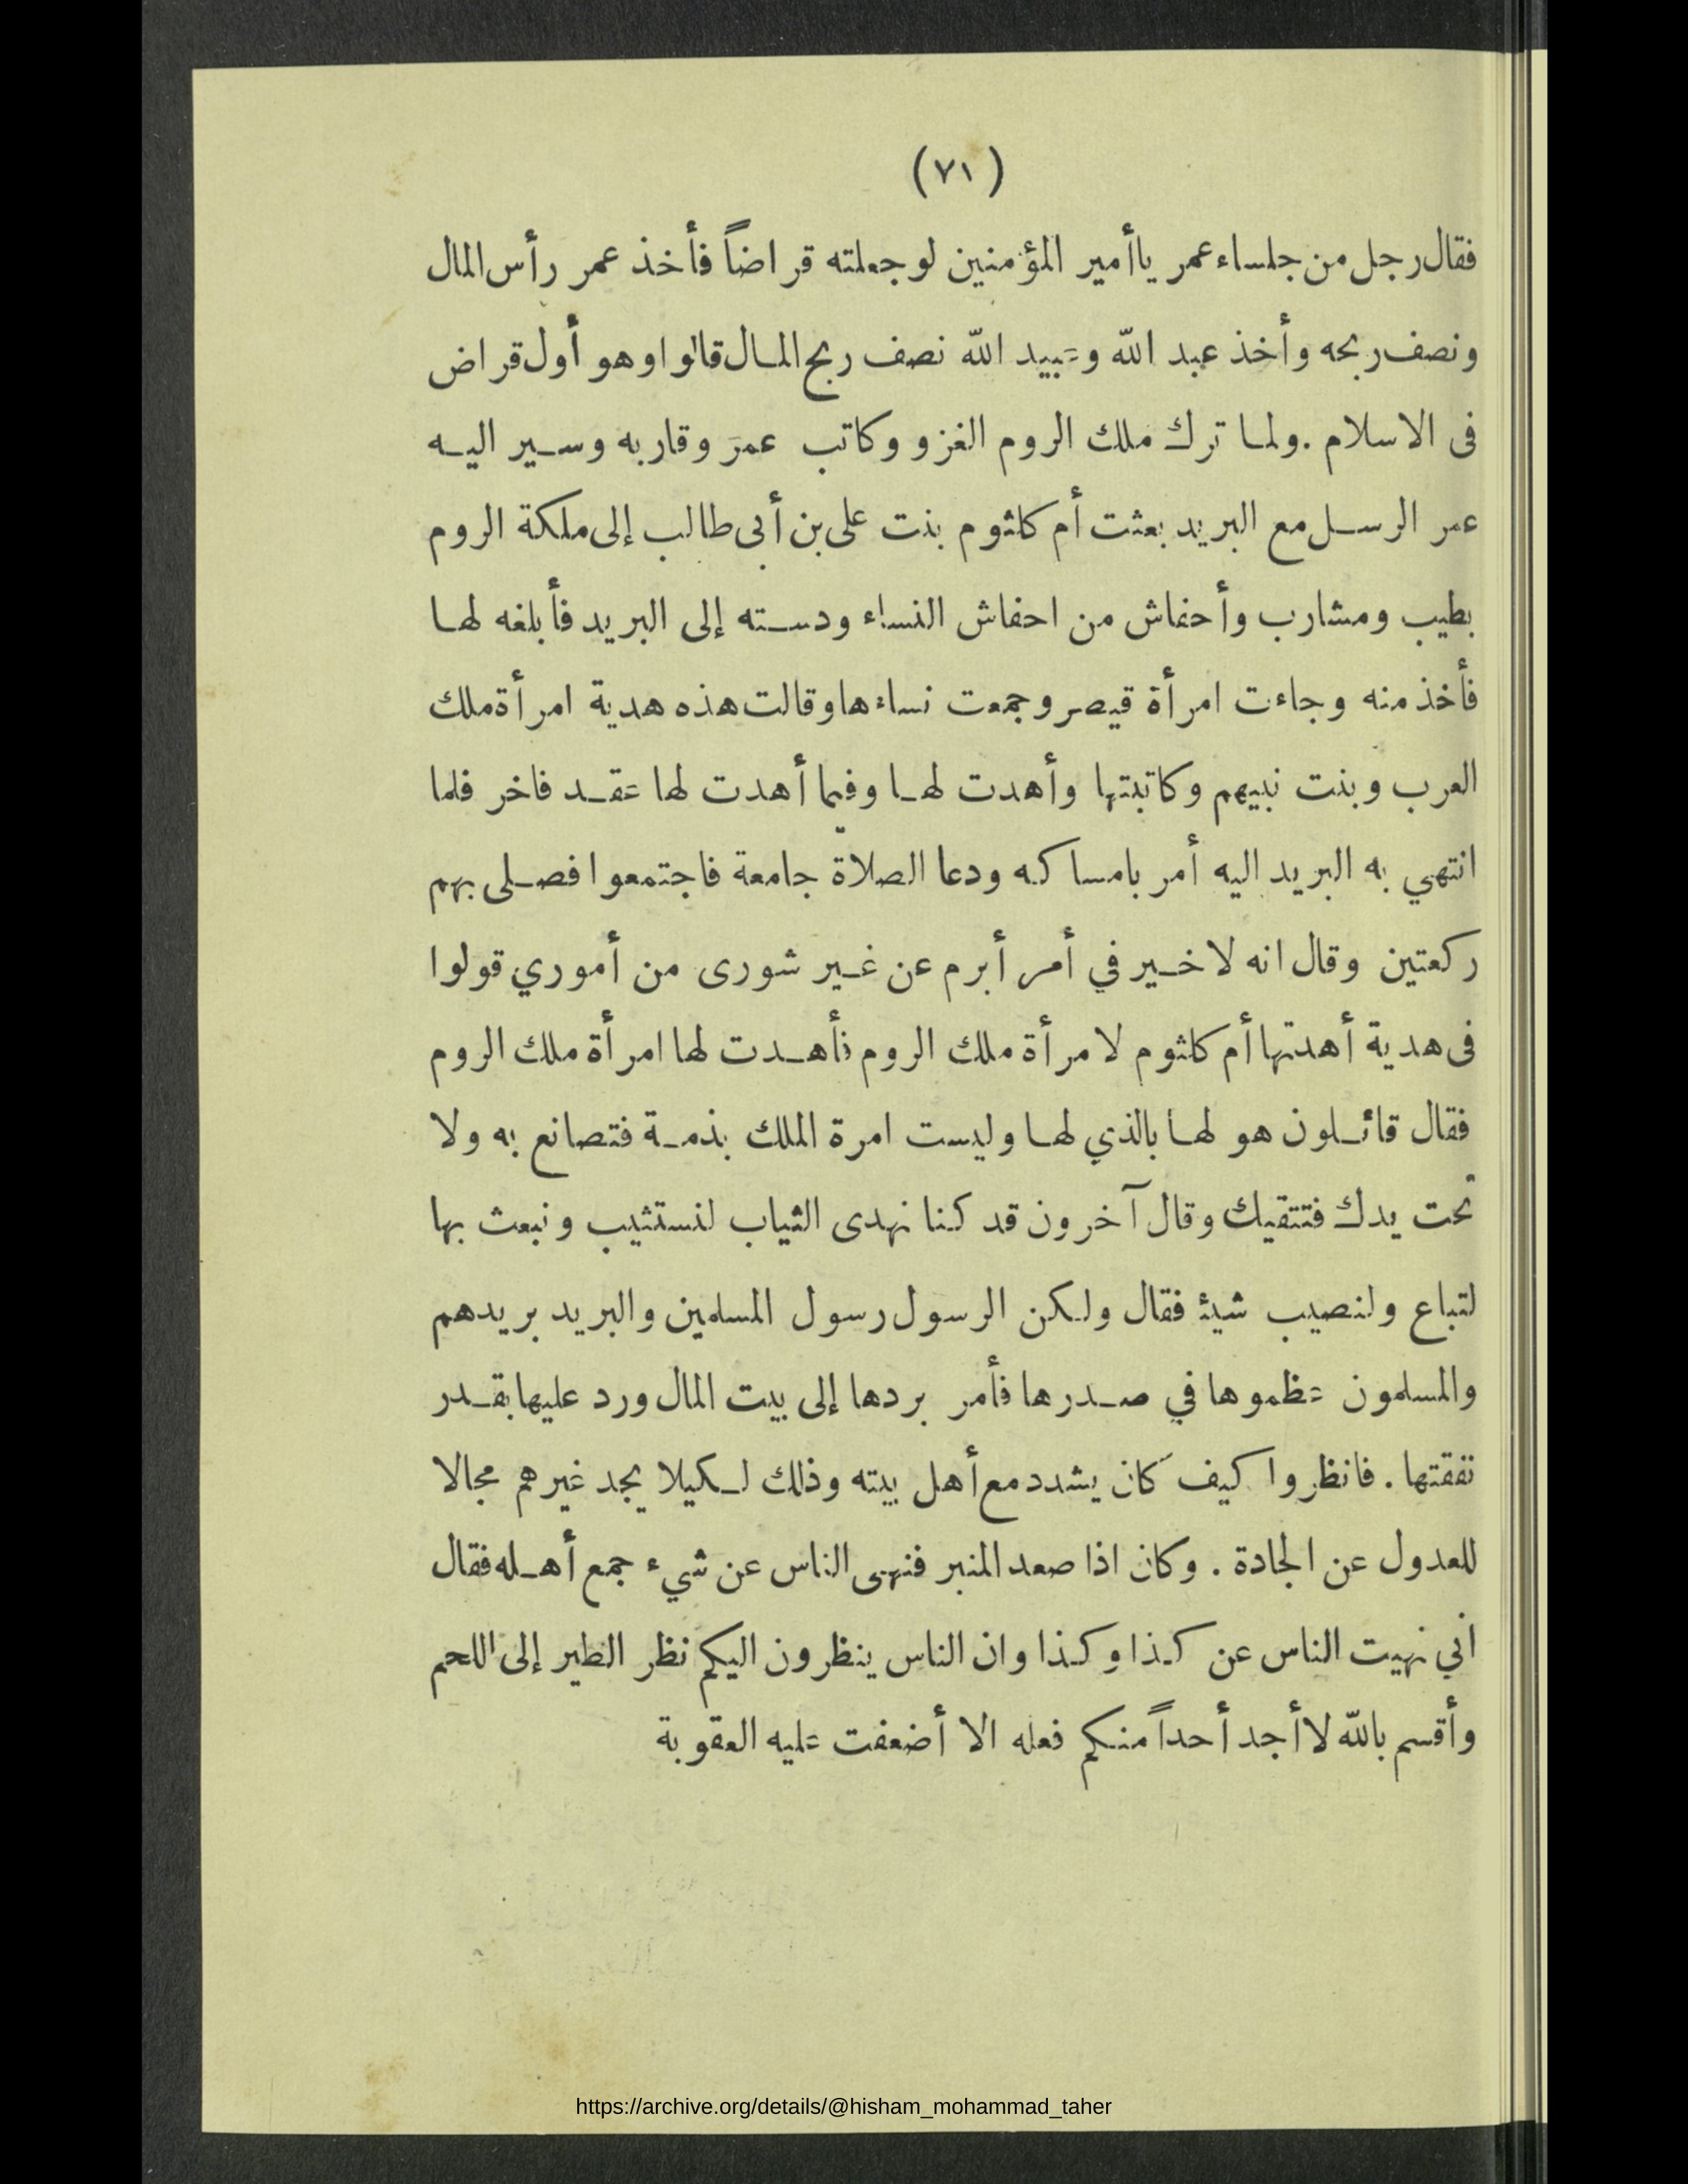 (٧١)
فقال رجل من جلساء عمر ياأمير المؤمنين لو جعلته قراضاً فأخذ عمر رأس المال
ونصف ربحه وأخذ عبد الله وعبيد الله نصف ربح المال قالوا وهو أول قراض
فى الاسلام . ولما ترك ملك الروم الغزو وكاتب عمر وقاربه وسير اليه
عمر الرسل مع البريد بعثت أم كلثوم بنت على بن أبى طالب إلى ملكة الروم
بطيب ومشارب وأحفاش من احفاش النساء ودسته إلى البريد فأبلغه لها
فأخذ منه وجاءت امرأة قيصر وجمعت نساءها وقالت هذه هدية امرأة ملك
العرب وبنت نبيهم وكاتبتها وأهدت لها وفيما أهدت لها عقد فاخر فلما
انتهي به البريد اليه أمر بامساكه ودعا الصلاة جامعة فاجتمعوا فصلى بهم
ركعتين وقال انه لا خير في أمر أبرم عن غير شورى من أموري قولوا
فى هدية أهدتها أم كلثوم لامرأة ملك الروم فأهدت لها امرأة ملك الروم
فقال قائلون هو لها بالذي لها وليست امرة الملك بذمة فتصانع به ولا
تحت يدك فتتقيك وقال آخرون قد كنا نهدى الثياب لنستثيب ونبعث بها
لتباع ولنصيب شيئ فقال ولكن الرسول رسول المسلمين والبريد بريدهم
والمسلمون عظموها في صدرها فأمر بردها إلى بيت المال ورد عليها بقدر
نفقتها . فانظروا كيف كان يشدد مع أهل بيته وذلك لكيلا يجد غيرهم مجالا
للعدول عن الجادة . وكان اذا صعد المنبر فنهى الناس عن شيء جمع أهله فقال
اني نهيت الناس عن كذا وكذا وان الناس ينظرون اليكم نظر الطير إلى اللحم
وأقسم بالله لا أجد أحداً منكم فعله الا أضعفت عليه العقوبة
https://archive.org/details/@hisham_mohammad_taher